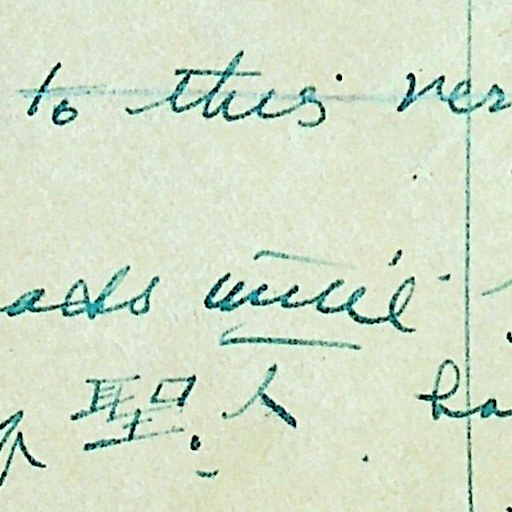 to this ver
acts until
聖人 ha